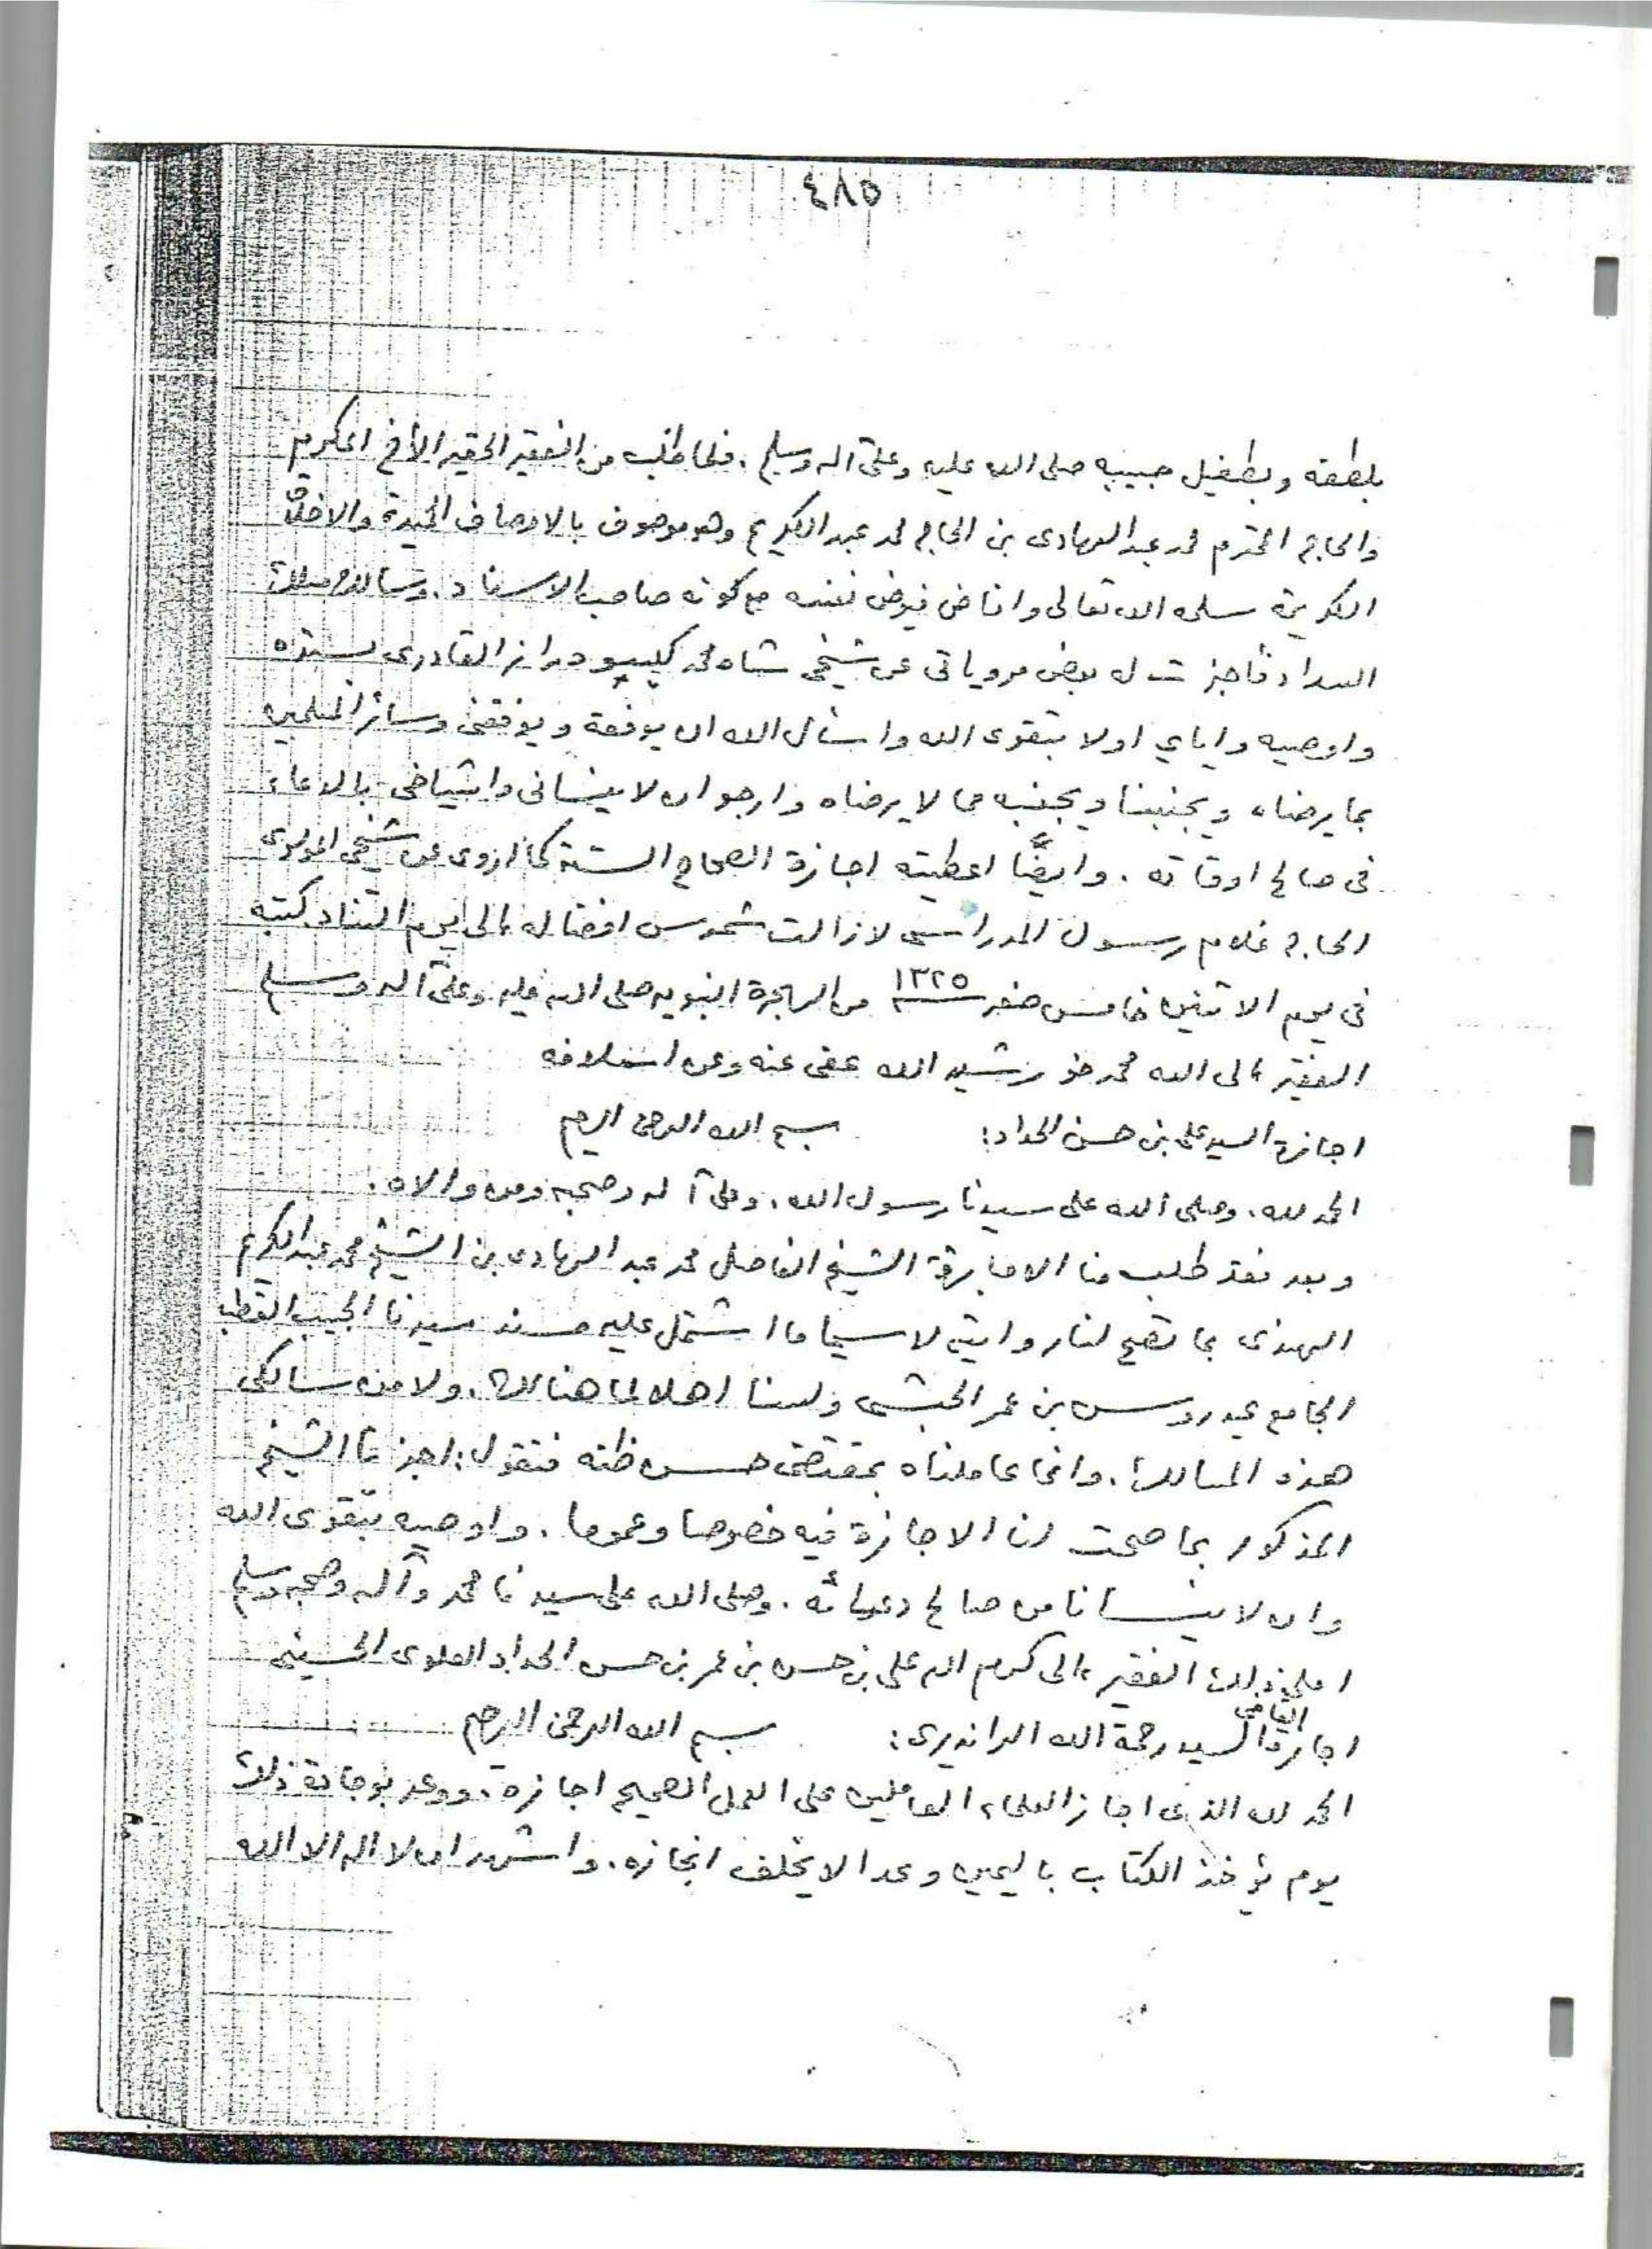 ٤٨٥
بلطفه وبطفيل حبيبه صلى الله عليه وعلى آله وسلم . فلما طلب من الفقير الحقير الأخ المكرم
والحاج المحترم محمد عبد الهادى بن الحاج محمد عبد الكريم وهو موصوف بالاوصاف الحميدة والاخلاق
الكريمة سلمه الله تعالى وافاض فيوض نفسه مع كونه صاحب الاسناد . وسالك مسلك
السداد فأجزت له بعض مروياتى عن شيخى شاه محمد گيسو دراز القادرى بسنده
واوصيه واياي اولا بتقوى الله واسأل الله ان يوفقه ويوفقنى وسائر المسلمين
بما يرضاه ويجنبنا ويجنبه مما لا يرضاه وارجو ان لا ينسانى واشياخى بالدعاء
فى صالح اوقاته . وايضًا اعطيته اجازة الصحاح الستة كما اروى عن شيخى المولوى
الحاج غلام رسول المدراسى لا زالت شموس افضاله الى يوم التناد كتبه
فى يوم الاثنين خامس صفر ١٣٢٥ من الهجرة النبويه صلى الله عليه وعلى آله وسلم
الفقير الى الله محمد خورشيد الله عفى عنه وعن اسلافه
اجازة السيد على بن حسن الحداد : بسم الله الرحمن الرحيم
الحمد لله . وصلى الله على سيدنا رسول الله . وعلى آله وصحبه ومن والاه .
وبعد فقد طلب منا الاجازة الشيخ الفاضل محمد عبد الهادى بن الشيخ محمد عبد الكريم
الهندى بما تصح لنا روايته لا سيما ما اشتمل عليه مسند سيدنا الحبيب القطب
الجامع عيدروس بن عمر الحبشى ولسنا اهلا لما هنالك . ولا من سالكى
هذه المسالك . وانما عاملناه بمقتضى حسن ظنه فنقول : اجزنا الشيخ
المذكور بما صحت لنا الاجازة فيه خصوصا وعموما . واوصيه بتقوى الله
وان لا ينسانا من صالح دعائه . وصلى الله على سيدنا محمد وآله وصحبه وسلم
املى ذلك الفقير الى كرم الله على بن حسن بن عمر بن حسن الحداد العلوى الحسينى
اجازة القاضى السيد رحمة الله الراندیرى : بسم الله الرحمن الرحيم
الحمد لله الذى اجاز العلماء العاملين على العمل الصحيح اجازة . ووعد بوجادة ذلك
يوم يؤخذ الكتاب باليمين وعدا لا يخلف انجازه . واشهد ان لا اله الا الله